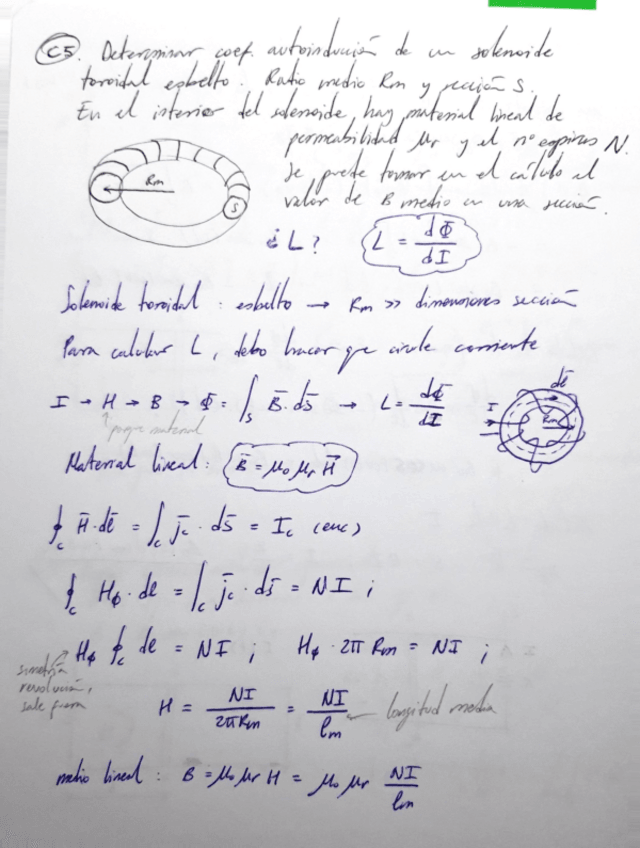 C5. Determinar coef. autoinducción de un solenoide
toroidal esbelto. Ratio medio Rm y sección S.
En el interior del solenoide, hay material lineal de
permeabilidad μr y el nº espiras N.
Se puede tomar en el cálculo el
valor de B medio en una sección.
Rm
S
¿L? L = dΦ/dI
Solenoide toroidal: esbelto → Rm >> dimensiones sección
Para calcular L, debo hacer que circule corriente
I → H → B → Φ = ∫s B̄·ds̄ → L = dΦ/dI
dl̄
I
Rm
porque material
Material lineal: B̄ = μ₀ μr H̄
∮c H̄·dl̄ = ∫c j̄c · ds̄ = Ic (enc)
∮c Hφ·dl = ∫c j̄c · ds̄ = NI;
Hφ ∮c dl = NI; Hφ · 2π Rm = NI;
simetría
revolución,
sale fuera
H = NI/2πRm = NI/lm longitud media
medio lineal: B = μ₀ μr H = μ₀ μr NI/lm